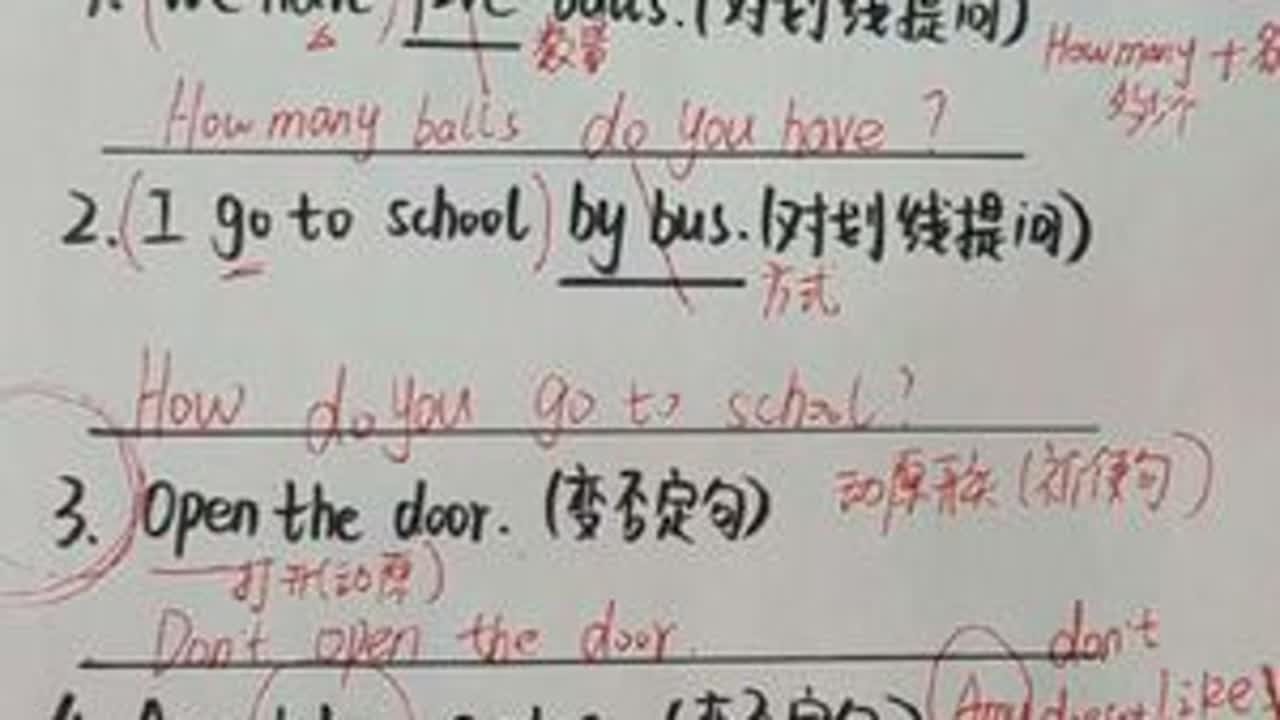 1. (We have) five balls. (对划线提问)
数量
How many + 
多少个
How many balls do you have ?
2. (I go to school) by bus. (对划线提问)
方式
How do you go to school ?
3. Open the door. (变否定句)
动原形 (祈使句)
打开(动原)
Don't open the door.
don't
Amy doesn't like
(变否定句)